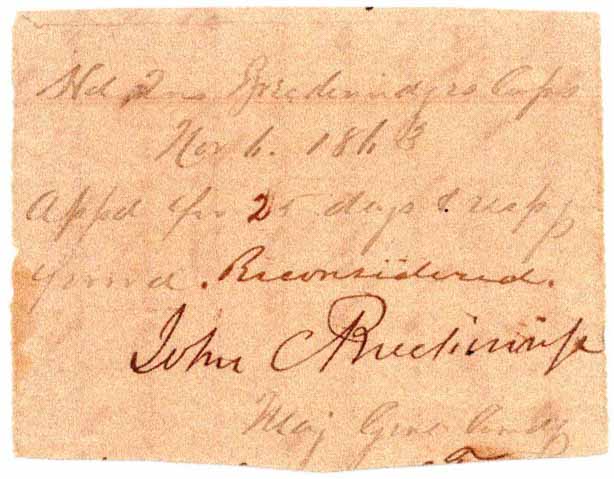 Hd Qrs Breckinridges Corps
Nov 6. 1863
Appd for 25 days & resp
forwd. Reconsidered.
John C Breckinridge
Maj Genl Comdg